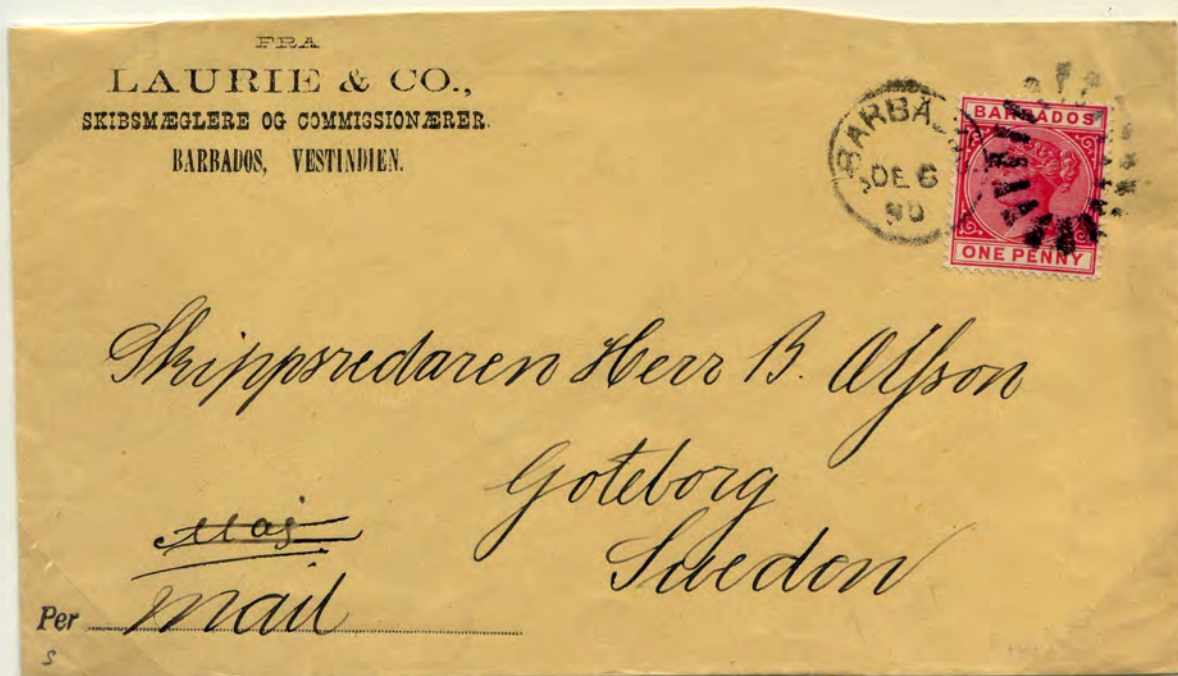 FRA
LAURIE & CO.,
SKIBSMÆGLERE OG COMMISSIONÆRER.
BARBADOS, VESTINDIEN.
BARBA
DE 6
90
BARBADOS
ONE PENNY
Skippsredaren Herr B. Olsson
Goteborg
Sweden
Per mail
S